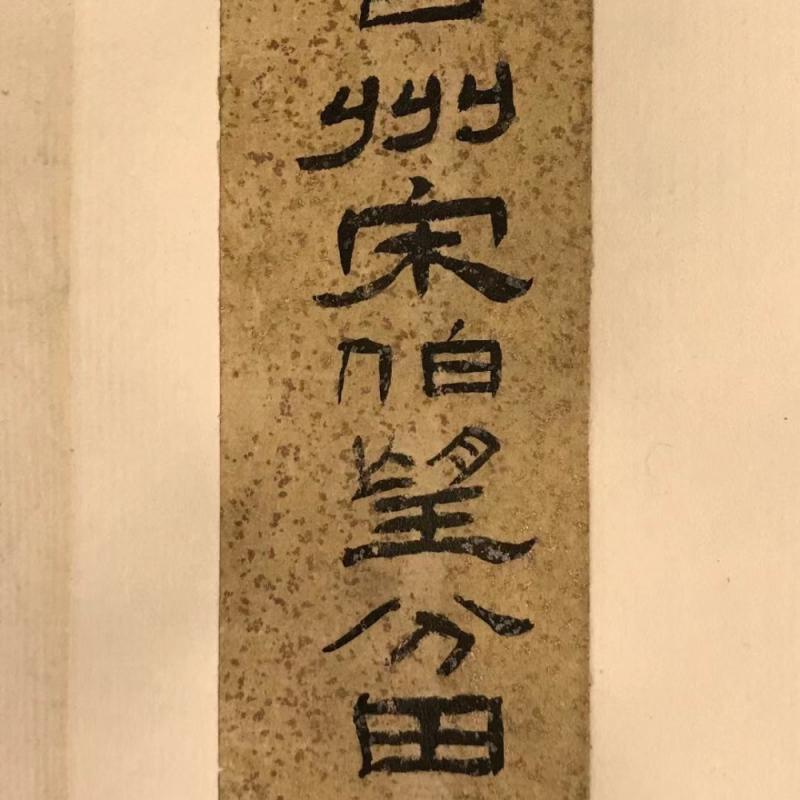 州宋伯望分田